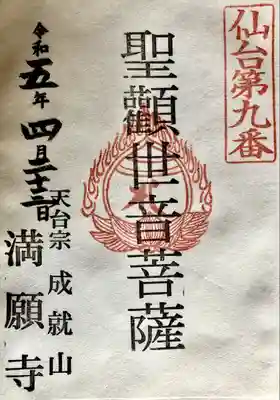 仙台第九番
聖觀世音菩薩
天台宗 成就山
満願寺
令和五年四月二十三日